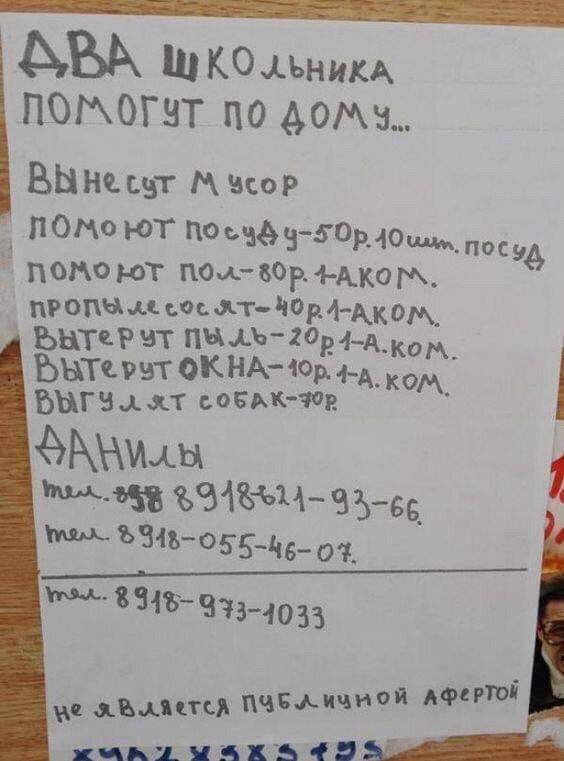 ДВА ШКОЛЬНИКА
ПОМОГУТ ПО ДОМУ...
ВЫНЕСУТ МУСОР
ПОМОЮТ ПОСУДУ-50р.10шт. ПОСУД
ПОМОЮТ ПОЛ-80р.1-А КОМ.
ПРОПЫЛЕСОСЯТ-40р.1-А КОМ.
ВЫТЕРУТ ПЫЛЬ-20р.1-А. КОМ.
ВЫТЕРУТ ОКНА-10р.1-А. КОМ.
ВЫГУЛЯТ СОБАК-70р.
ДАНИЛЫ
тел. 8918-621-93-66.
тел. 8918-055-46-07.
тел. 8918-973-1033
не является ПУБЛИЧНОЙ АФЕРТОЙ